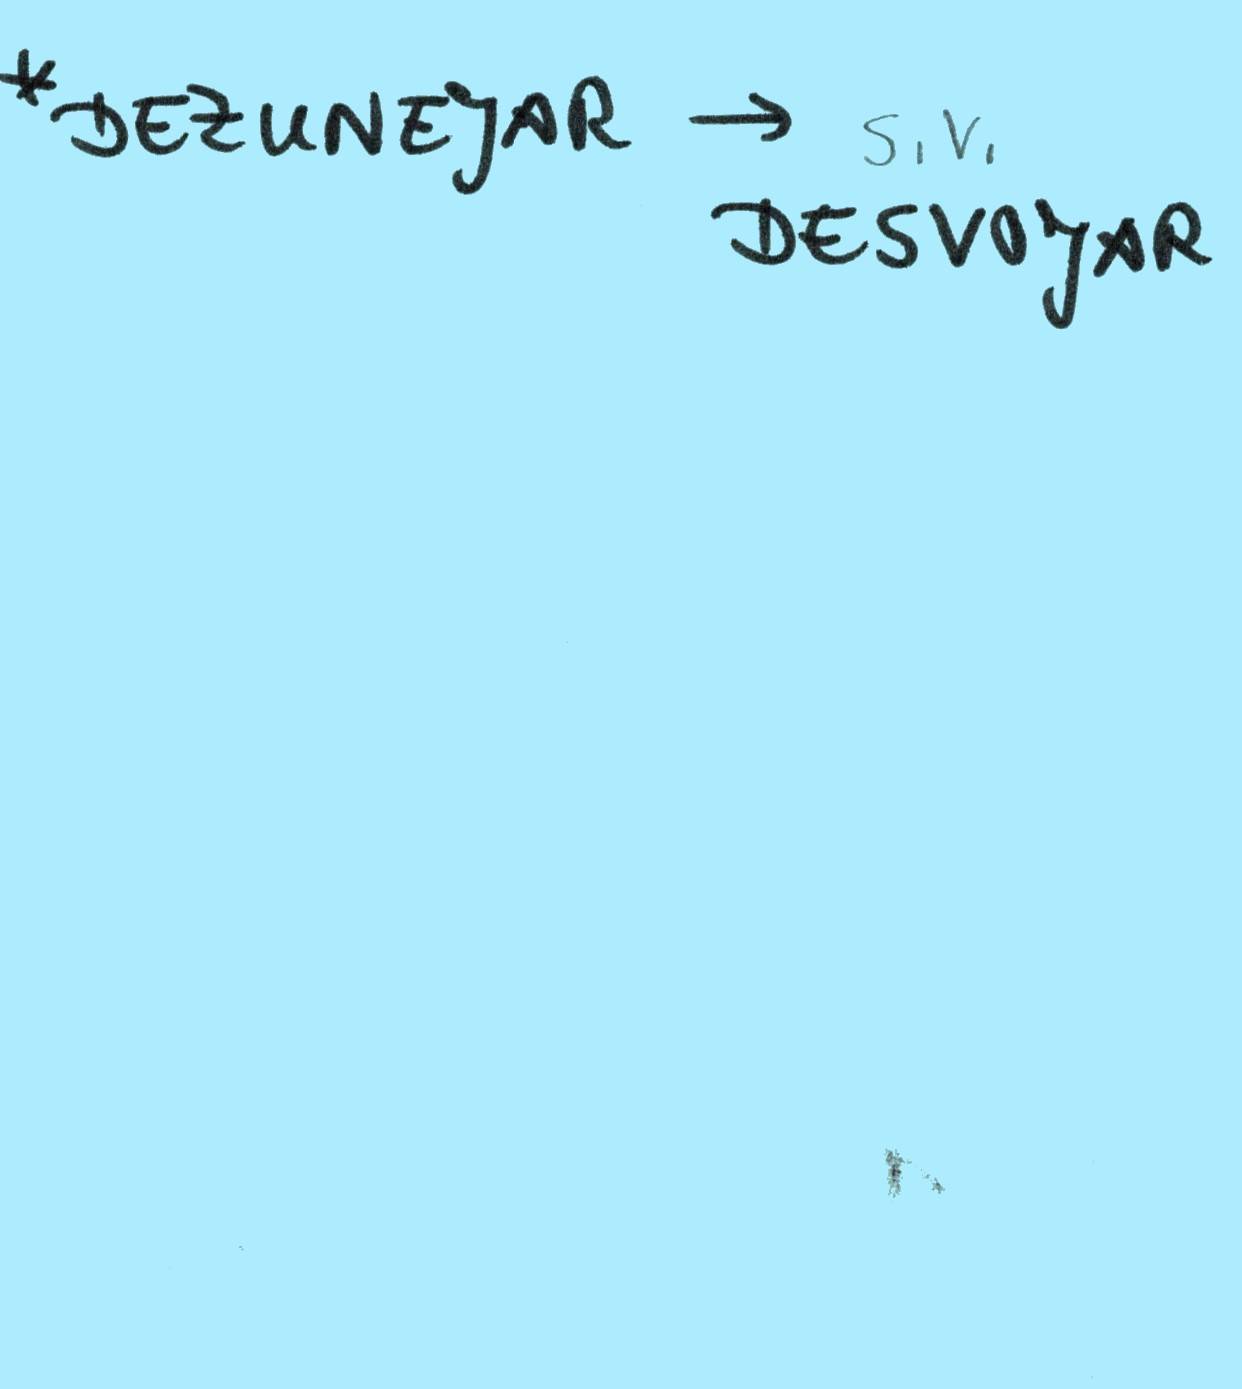 *DEZUNEJAR → S.V.
DESVOJAR